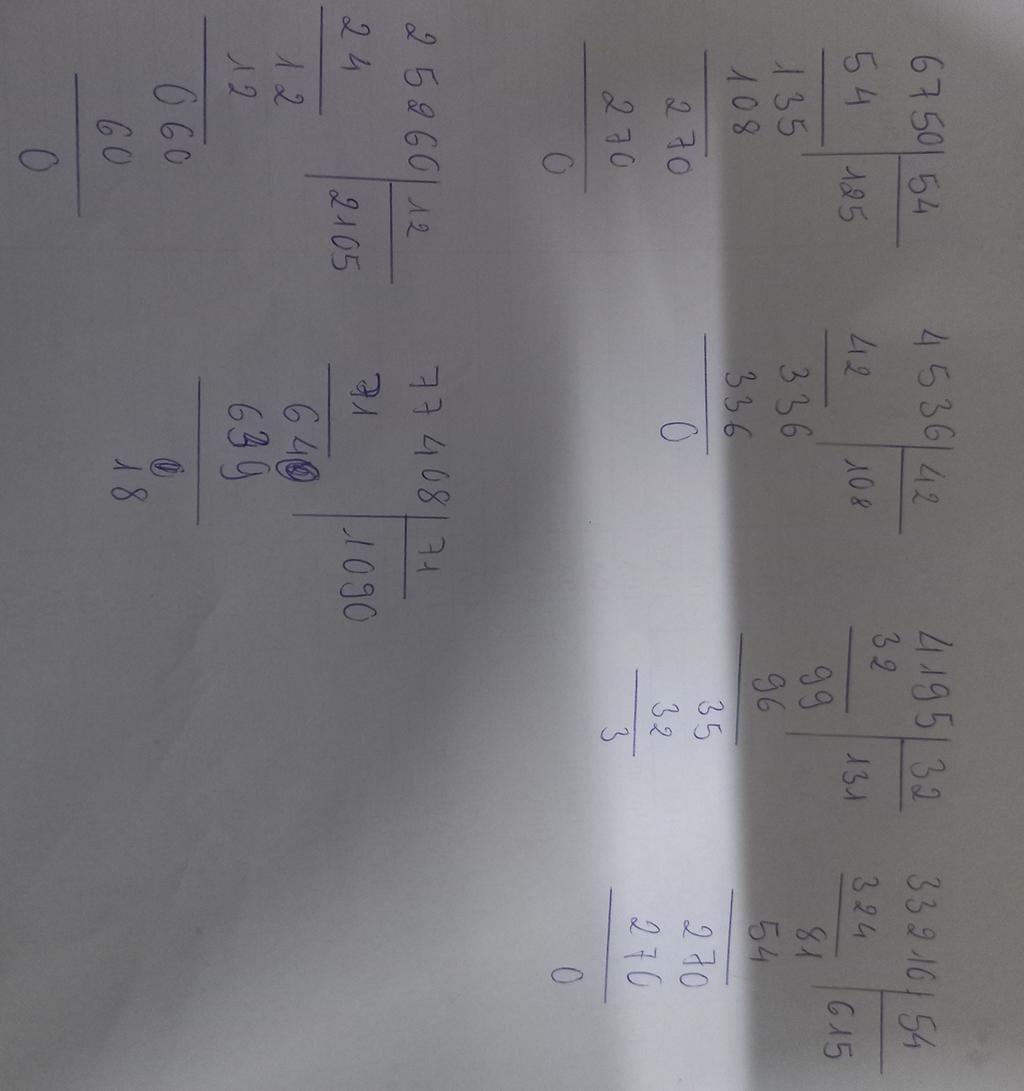 6750 54
54 125
135
108
270
270
0
4536 42
42 108
336
336
0
4195 32
32 131
99
96
35
32
3
33210 54
324 615
81
54
270
270
0
25260 12
24 2105
12
12
060
60
0
77408 71
71 1090
640
639
18